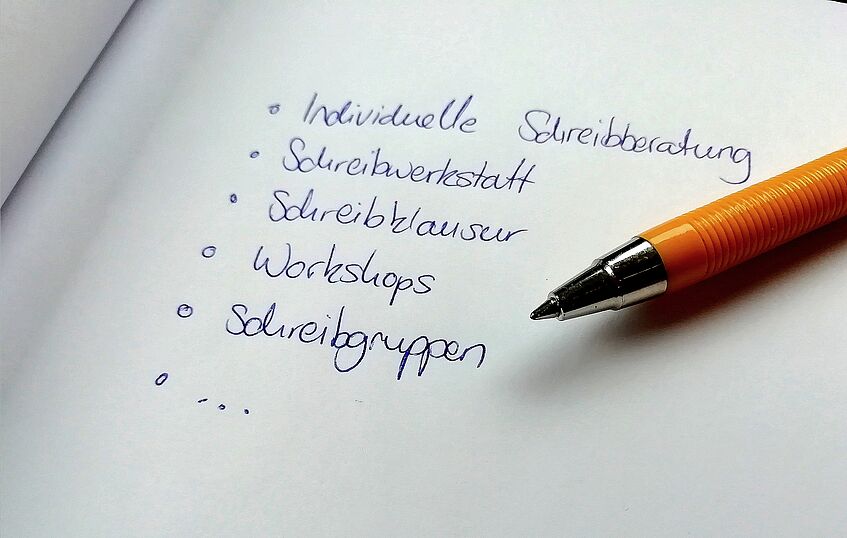 • Individuelle Schreibberatung
• Schreibwerkstatt
• Schreibklausur
• Workshops
• Schreibgruppen
• ...